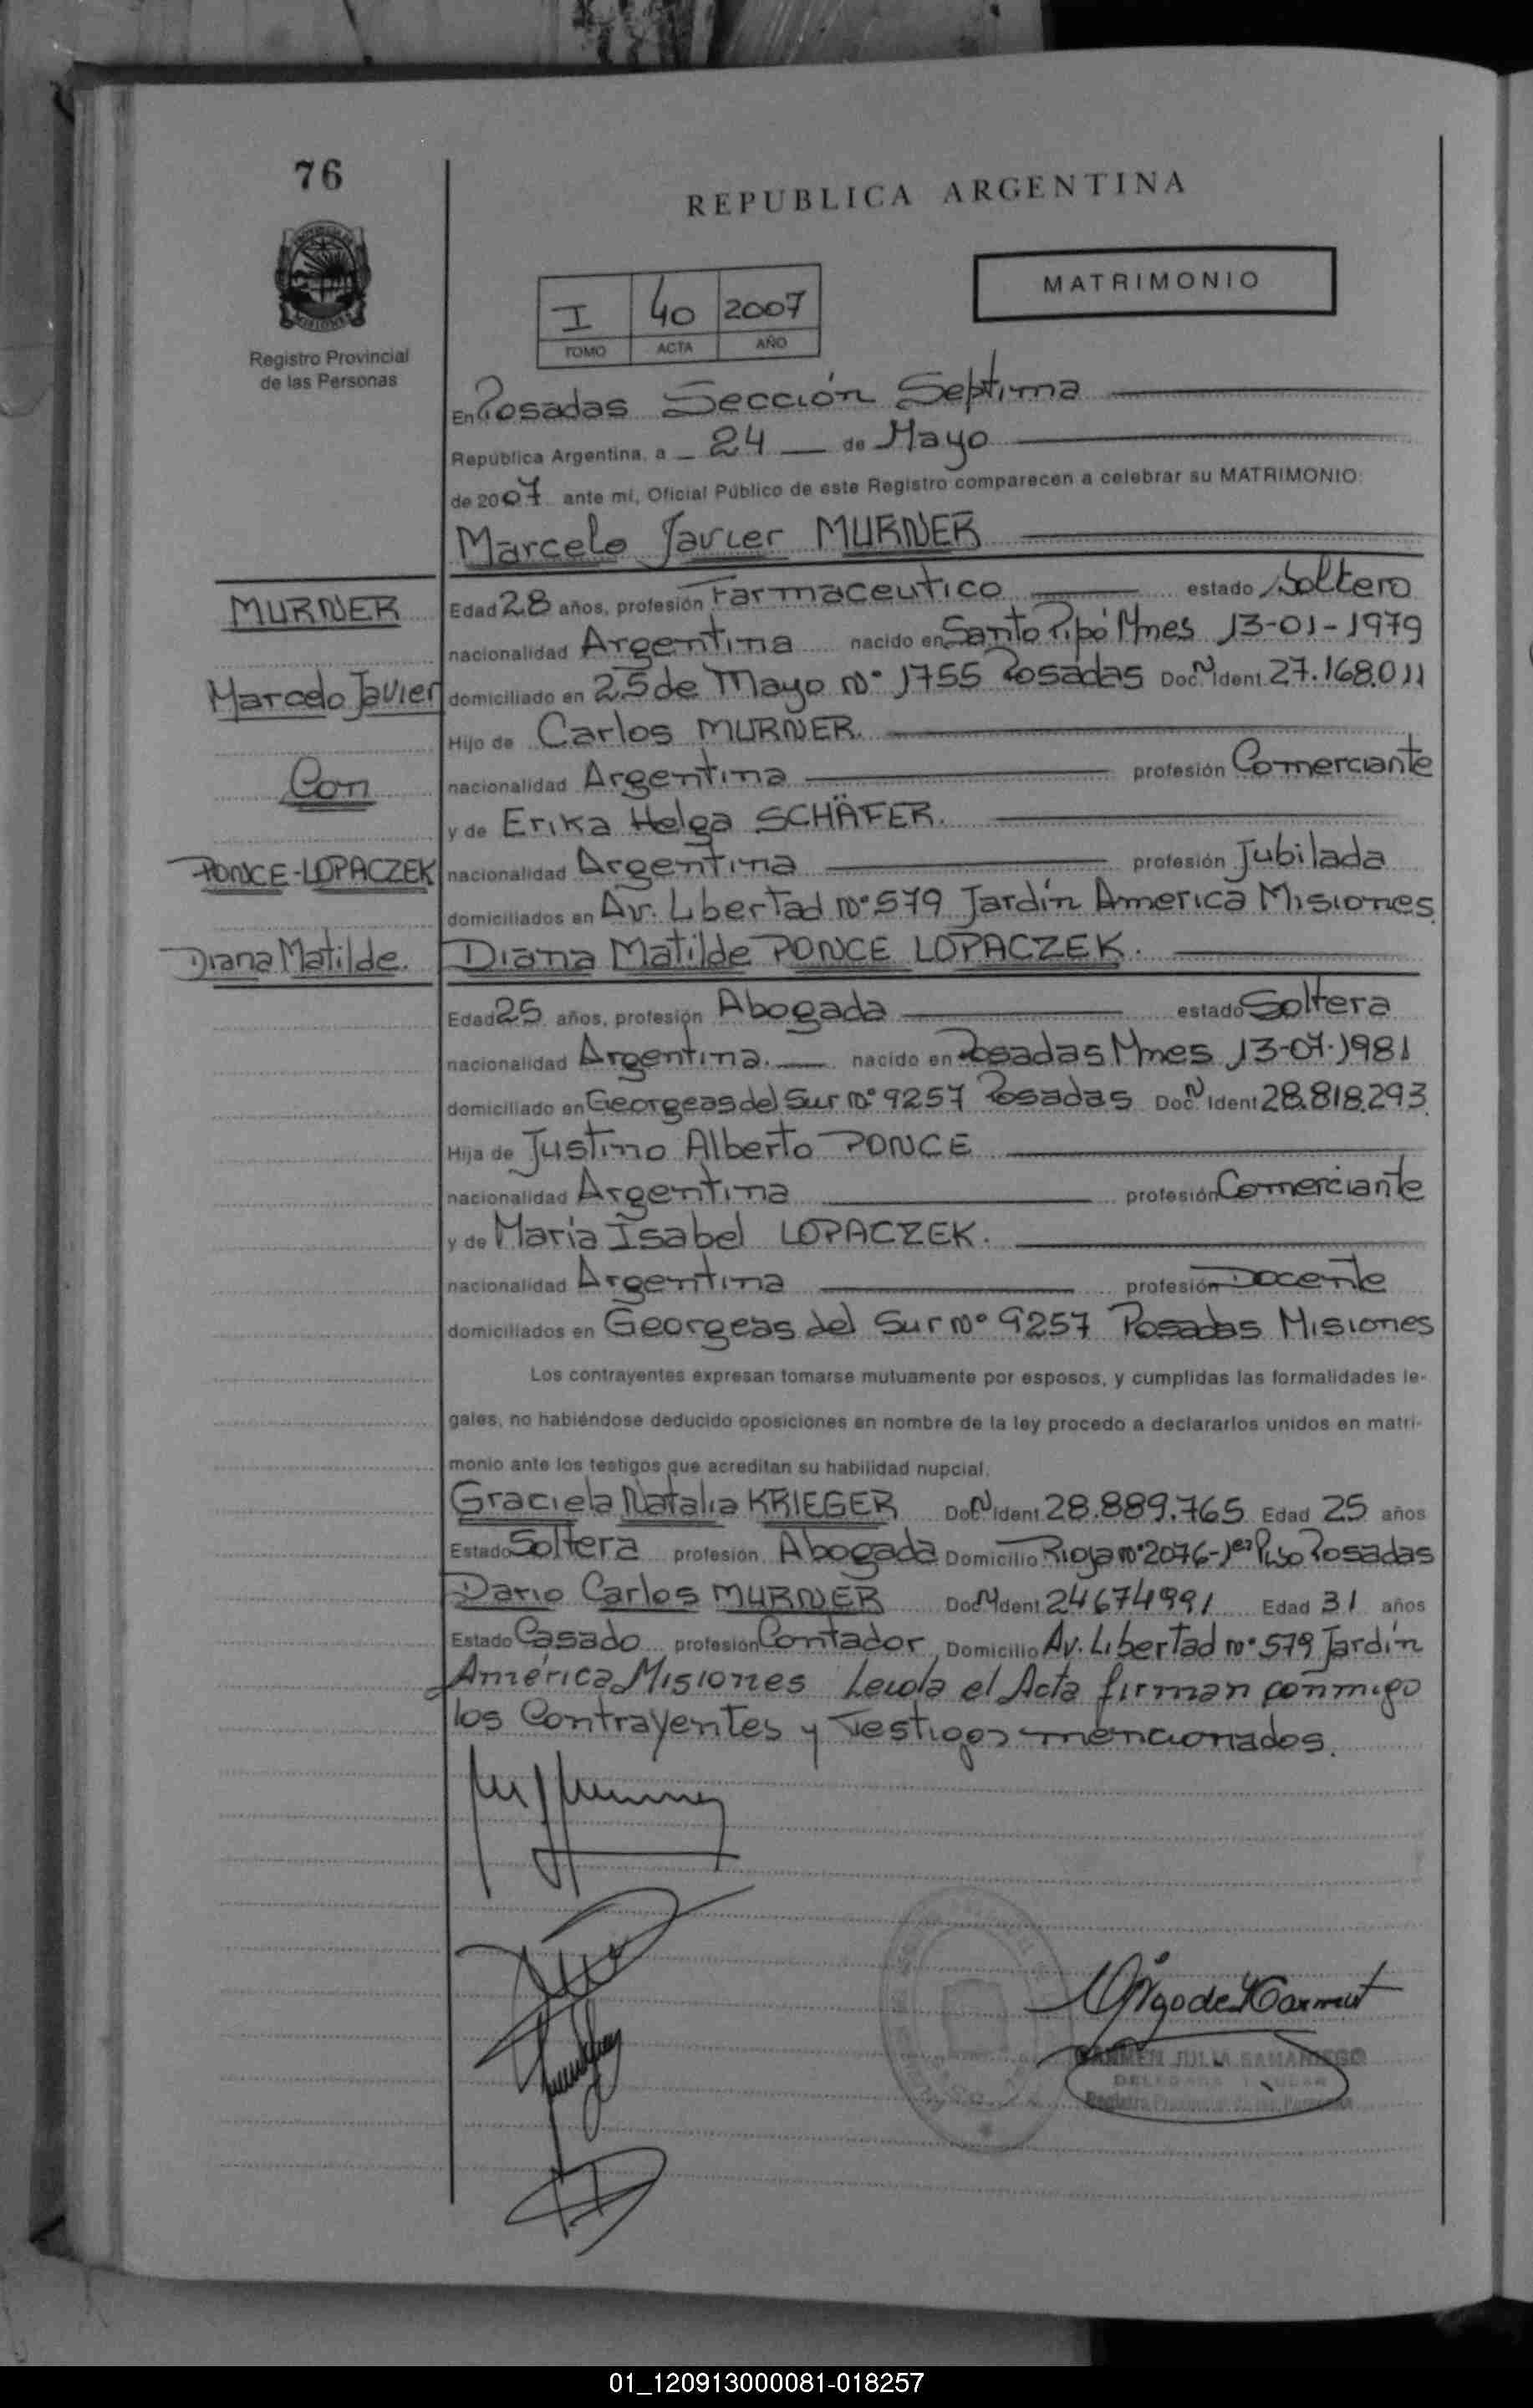 76
REPUBLICA ARGENTINA
PROVINCIA DE
MISIONES
MATRIMONIO
I 40 2007
TOMO ACTA AÑO
Registro Provincial
de las Personas
En Posadas Sección Septima
República Argentina, a 24 de Mayo
de 2007 ante mí, Oficial Público de este Registro comparecen a celebrar su MATRIMONIO:
Marcelo Javier MURNER
MURNER
Edad 28 años, profesión Farmaceutico estado Soltero
nacionalidad Argentina nacido en Santo Pipó Mnes 13-01-1979
Marcelo Javier
domiciliado en 25 de Mayo Nº 1755 Posadas Doc. N Ident. 27.168.011
Hijo de Carlos MURNER.
Con
nacionalidad Argentina profesión Comerciante
y de Erika Helga SCHÄFER.
PONCE-LOPACZEK
nacionalidad Argentina profesión Jubilada
domiciliados en Av. Libertad Nº 579 Jardín America Misiones
Diana Matilde.
Diana Matilde PONCE LOPACZEK.
Edad 25 años, profesión Abogada estado Soltera
nacionalidad Argentina. nacido en Posadas Mnes 13-07-1981
domiciliado en Georgeas del Sur Nº 9257 Posadas Doc. N Ident 28.818.293
Hija de Justino Alberto PONCE
nacionalidad Argentina profesión Comerciante
y de Maria Isabel LOPACZEK.
nacionalidad Argentina profesión Docente
domiciliados en Georgeas del Sur Nº 9257 Posadas Misiones
Los contrayentes expresan tomarse mutuamente por esposos, y cumplidas las formalidades le-
gales, no habiéndose deducido oposiciones en nombre de la ley procedo a declararlos unidos en matri-
monio ante los testigos que acreditan su habilidad nupcial.
Graciela Natalia KRIEGER Doc. N Ident. 28.889.765 Edad 25 años
Estado Soltera profesión Abogada Domicilio Rioja Nº 2076-1er Piso Posadas
Dario Carlos MURNER Doc. N Ident 24674991 Edad 31 años
Estado Casado profesión Contador, Domicilio Av. Libertad Nº 579 Jardín
América Misiones Leida el Acta firman conmigo
los Contrayentes y Testigos mencionados.
CARMEN JULIA SAMANIEGO
DELEGADA TITULAR
Registro Provincial de las Personas
01_120913000081-018257